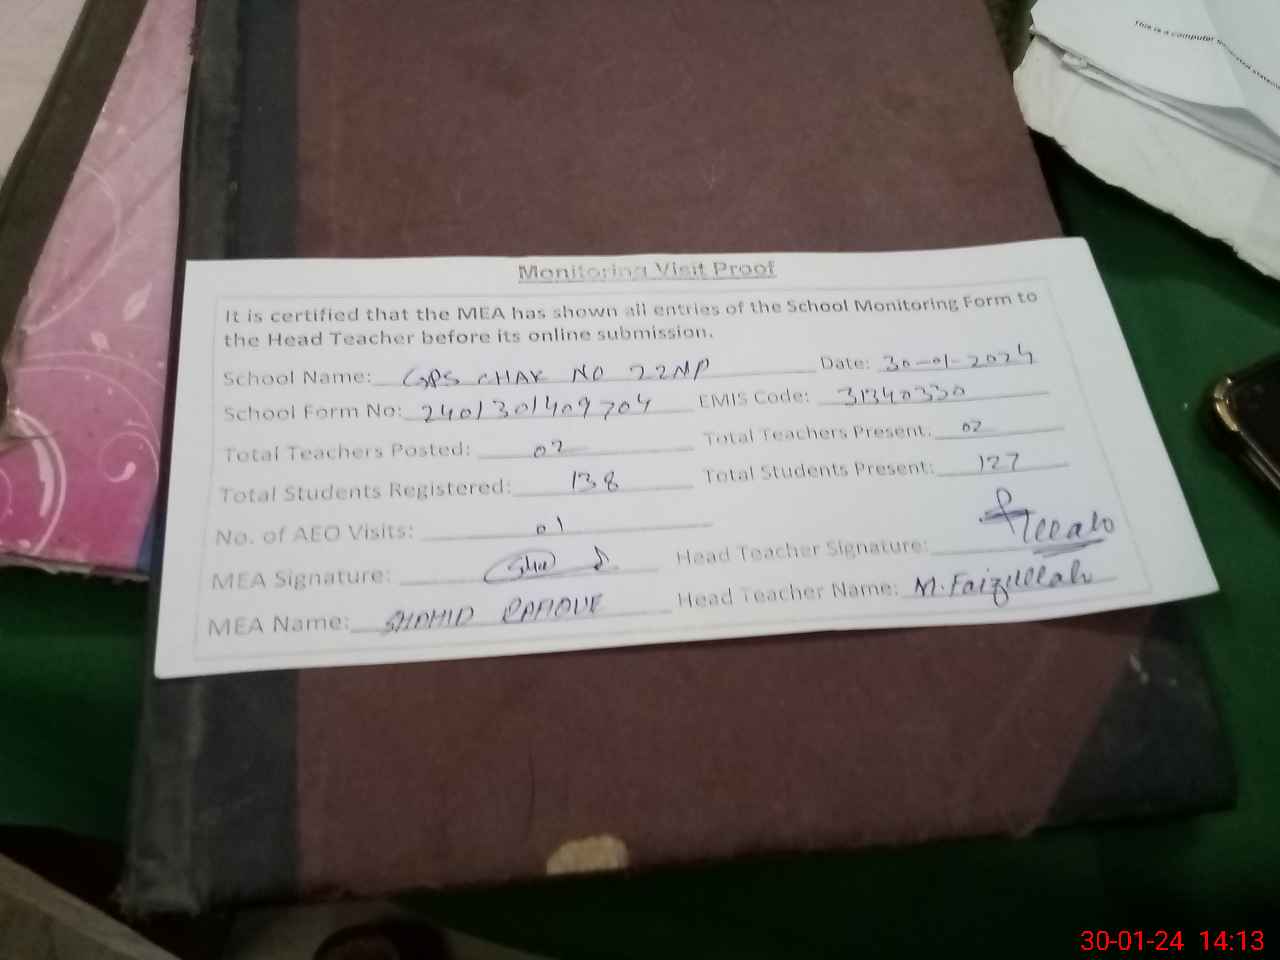 This is a computer generated statement
Monitoring Visit Proof
It is certified that the MEA has shown all entries of the School Monitoring Form to
the Head Teacher before its online submission.
School Name: GPS CHAK NO 22NP Date: 30-01-2024
School Form No: 2401301409704 EMIS Code: 31340330
Total Teachers Posted: 02 Total Teachers Present: 02
Total Students Registered: 138 Total Students Present: 127
No. of AEO Visits: 01
MEA Signature: Head Teacher Signature:
MEA Name: SHAHID RAFIQUE Head Teacher Name: M.Faizullah
30-01-24 14:13